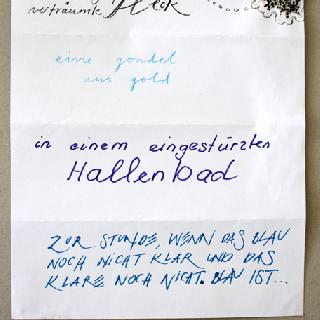 verträumte
eine gondel
aus gold
in einem eingestürzten
Hallenbad
ZUR STUNDE, WENN DAS BLAU
NOCH NICHT KLAR UND DAS
KLARE NOCH NICHT BLAU IST...